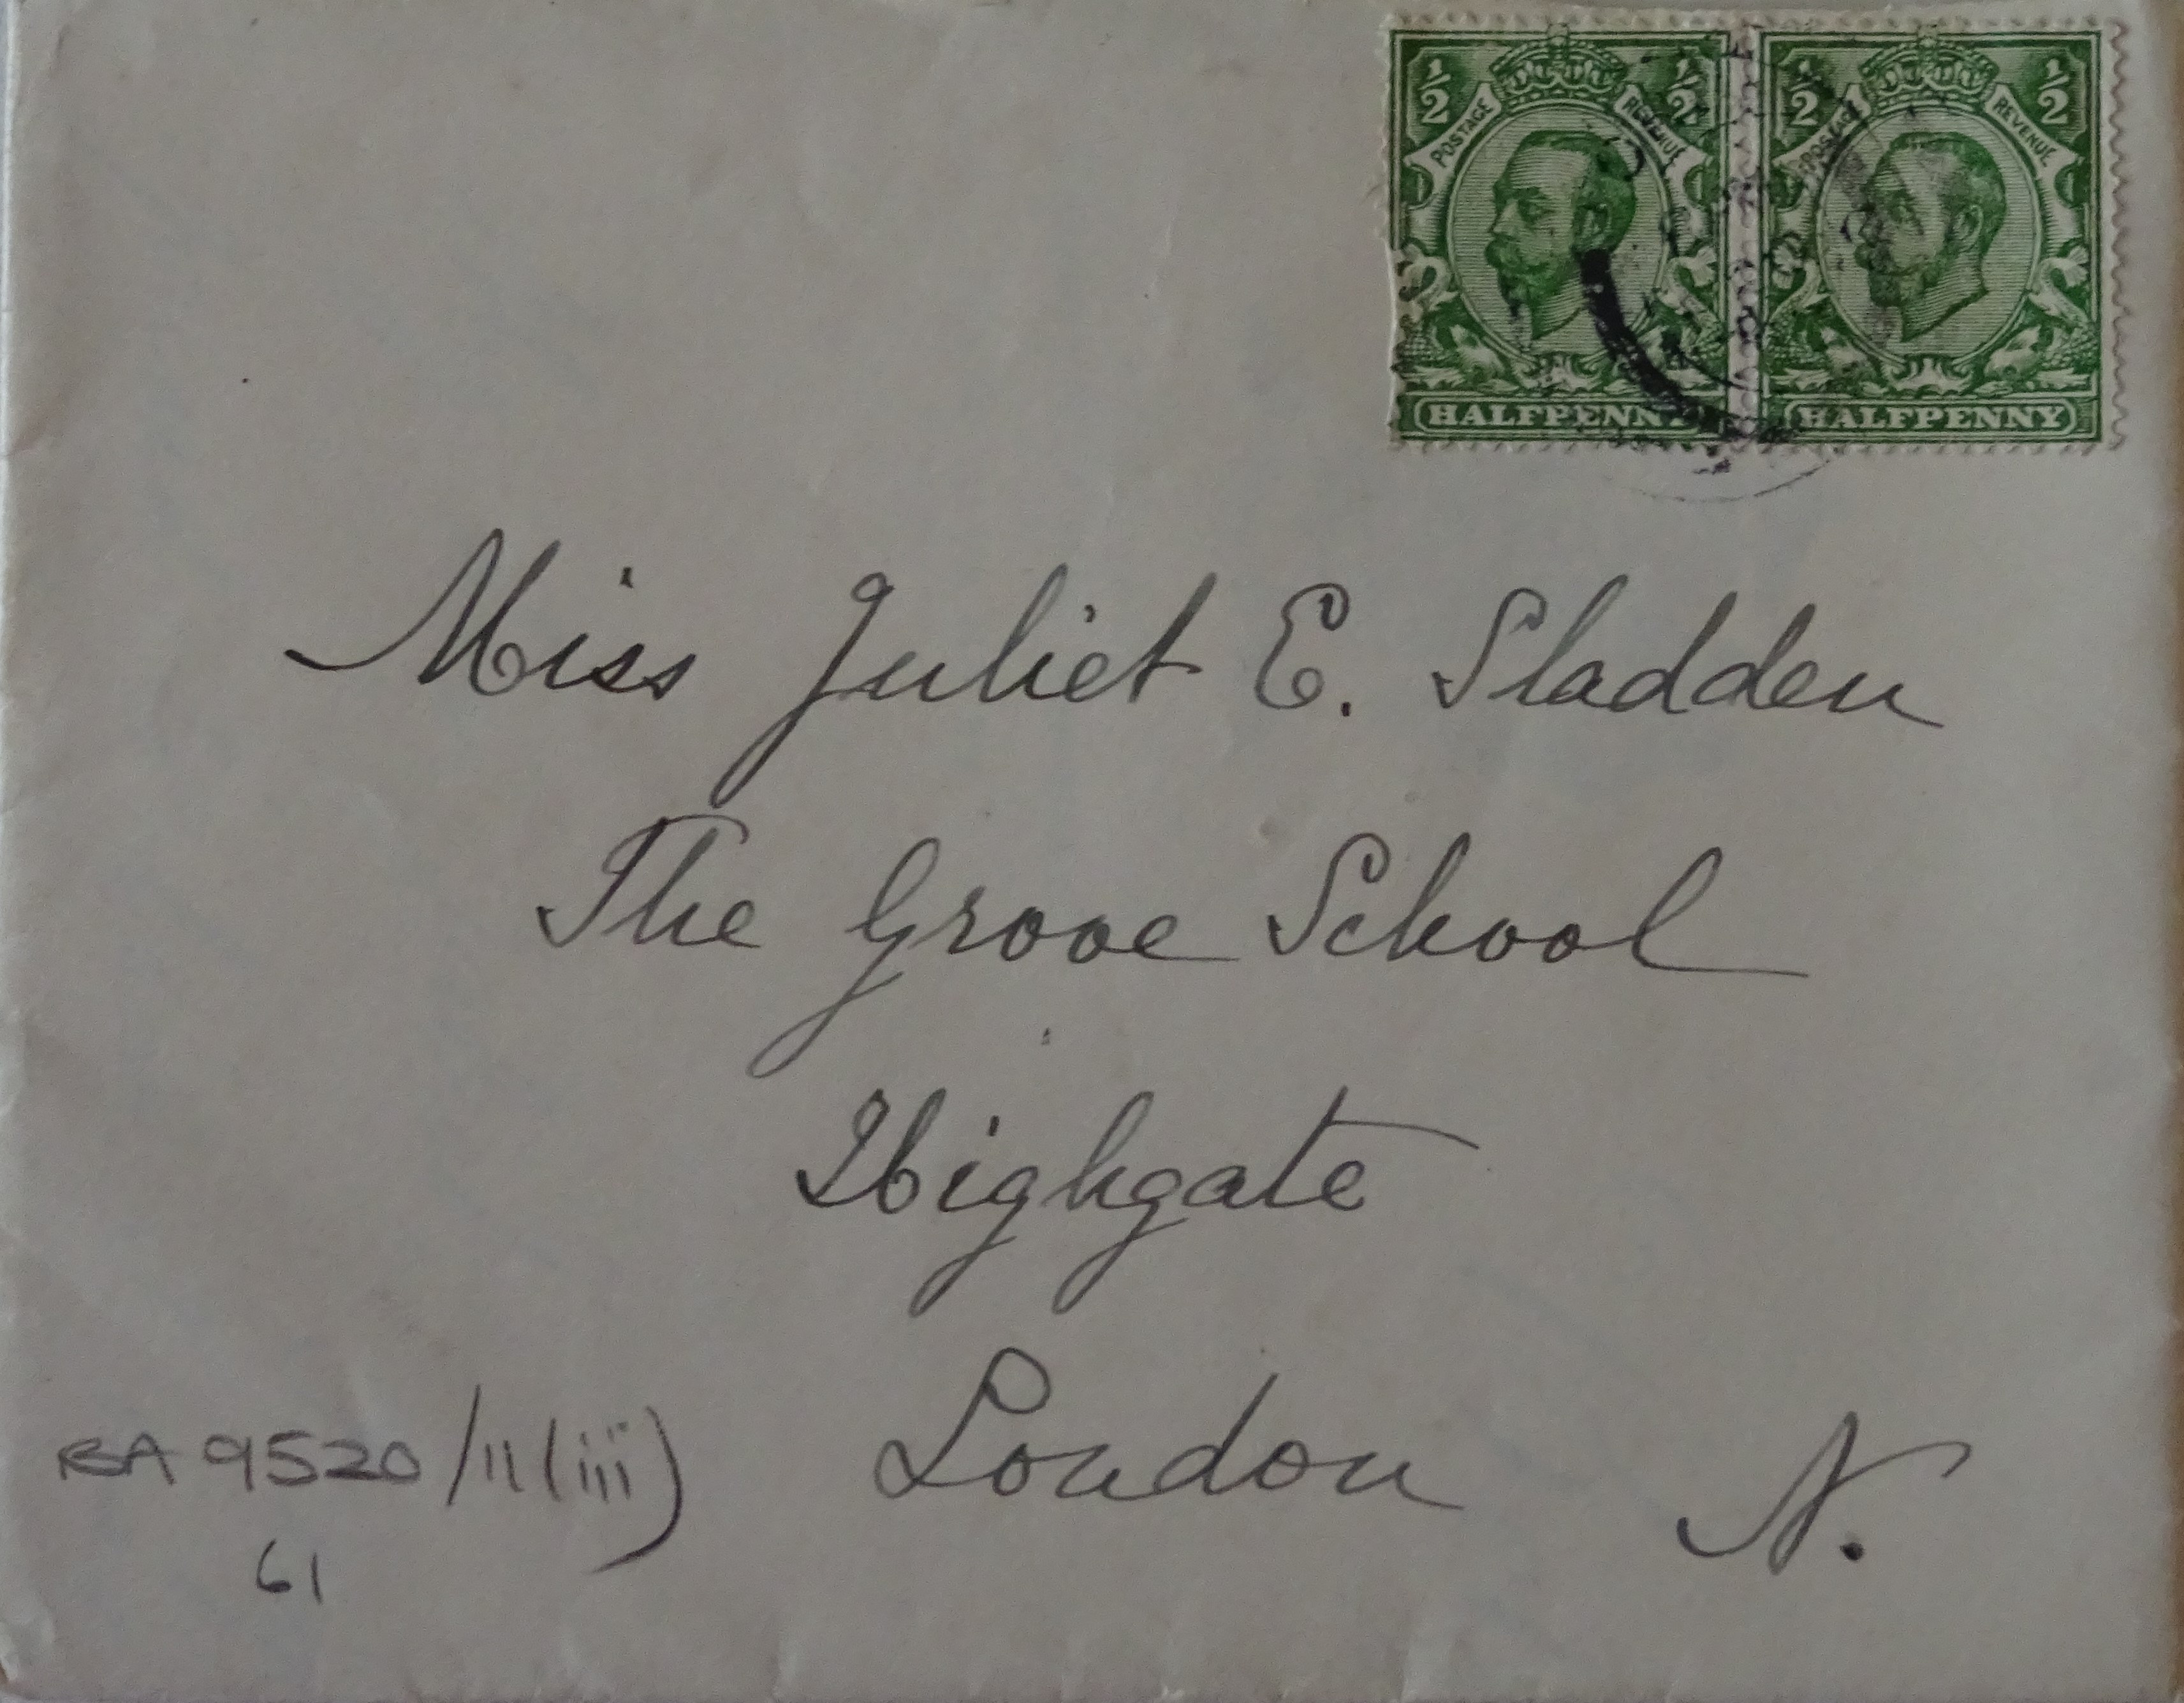 ½ POSTAGE REVENUE ½ ½ POSTAGE REVENUE ½
HALFPENNY HALFPENNY
Miss Juliet E. Sladden
The Grove School
Highgate
London N.
BA 9520/11(iii)
61